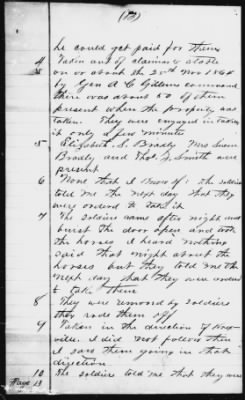 (12)
he could get paid for them
4 Taken out of claimants stable
5 on or about the 20th Nov 1864
by Gen A C Gillems command
there was about 50 of them
present when the property was
taken. They were engaged in taking
it only a few minutes
5 Elizabeth S. Brady Mrs Susan
Brady and Thos. S. Smith were
present
6 None that I know of: the soldiers
told me the next day that they
were ordered to take it
7 The soldiers came after night and
burst the door open and took
the horses I heard nothing
said that night about the
horses but they told me the
next day that they were ordered
to take them
8 They were removed by soldiers
they rode them off
9 Taken in the direction of Knox-
ville. I did not follow them
I saw them going in that
direction
10 The soldiers told me that they were
Page 13